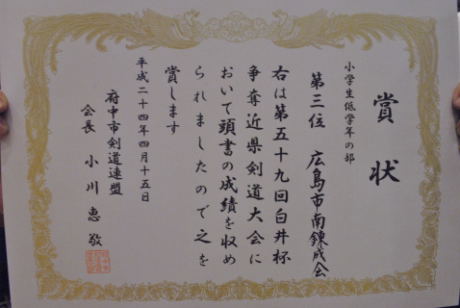 賞状
小学生低学年の部
第三位 広島市南錬成会
右は第五十九回白井杯
争奪近県剣道大会に
おいて頭書の成績を収め
られましたので之を
賞します
平成二十四年四月十五日
府中市剣道連盟
会長 小川恵敬